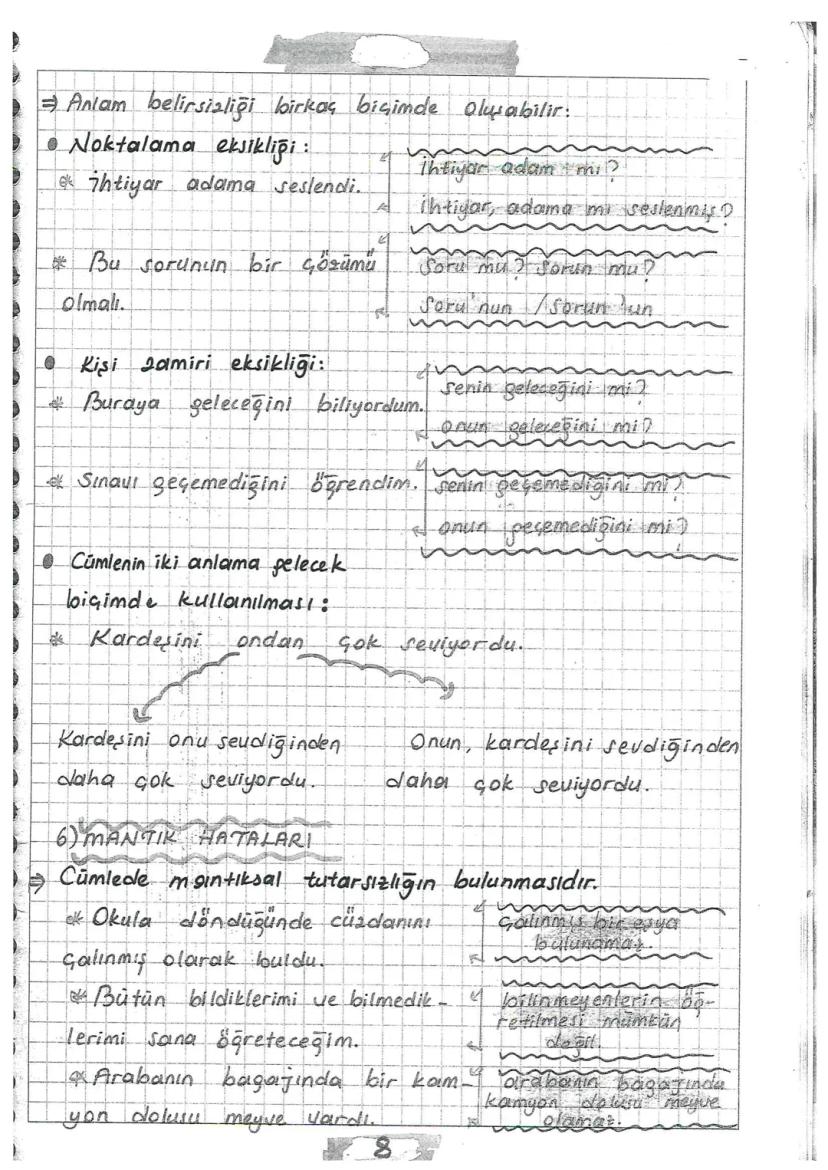 ⇒ Anlam belirsizliği birkaç biçimde oluşabilir:
● Noktalama eksikliği:
* İhtiyar adama seslendi.
İhtiyar adam mı?
İhtiyar, adama mı seslenmiş?
* Bu sorunun bir çözümü
olmalı.
Soru mu? Sorun mu?
Soru'nun / Sorun'un
● Kişi zamiri eksikliği:
* Buraya geleceğini biliyordum.
senin geleceğini mi?
onun geleceğini mi?
* Sınavı geçemediğini öğrendim.
senin geçemediğini mi?
onun geçemediğini mi?
● Cümlenin iki anlama gelecek
biçimde kullanılması:
* Kardeşini ondan çok seviyordu.
Kardeşini onu sevdiğinden
daha çok seviyordu.
Onun, kardeşini sevdiğinden
daha çok seviyordu.
6) MANTIK HATALARI
⇒ Cümlede mantıksal tutarsızlığın bulunmasıdır.
* Okula döndüğünde cüzdanını
çalınmış olarak buldu.
Çalınmış bir eşya
bulunamaz.
* Bütün bildiklerimi ve bilmedik-
lerimi sana öğreteceğim.
bilinmeyenlerin öğ-
retilmesi mümkün
değil.
* Arabanın bagajında bir kam-
yon dolusu meyve vardı.
arabanın bagajında
kamyon dolusu meyve
olamaz.
8